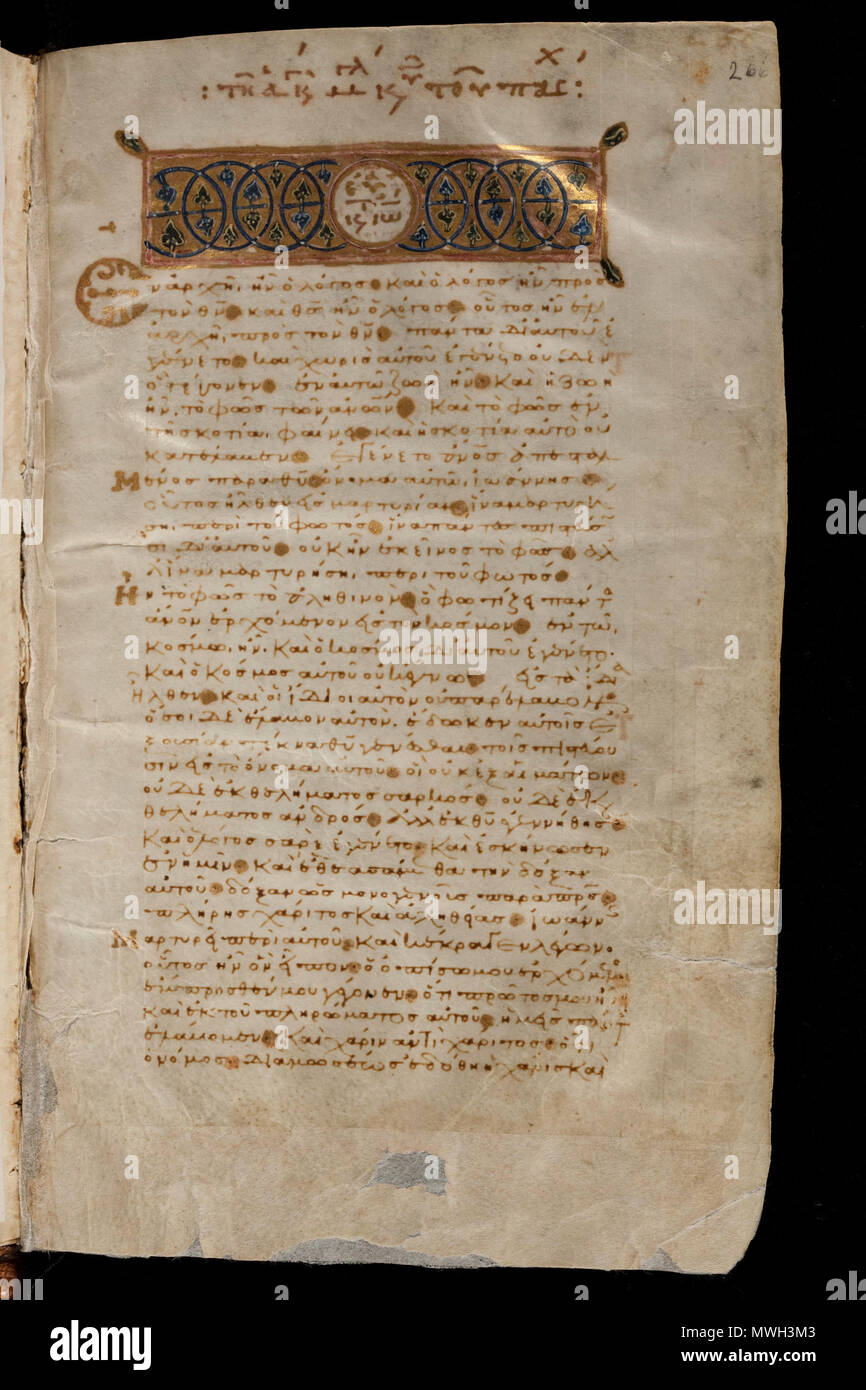 : τῆ ἁγί κ μλ κυ τοῦ πασχ :
266
ν ἀρχῆ, ἦν ὁ λόγος· καὶ ὁ λόγος ἦν πρὸσ
τὸν θν· καὶ θσ ἦν ὁ λόγος· οὗτος ἦν ἐν
ἀρχῆ, πρὸς τὸν θν· πάντα δι αὐτοῦ ἐ
γένετο· καὶ χωρὶς αὐτοῦ ἐγένετο οὐδὲν
ὃ γέγονεν· ἐν αὐτῶ ζωὴ ἦν· καὶ ἡ ζωὴ
ἦν, τὸ φῶς τῶν ἀνων· καὶ τὸ φῶς ἐν
τῆ σκοτία, φαίνει· καὶ ἡ σκοτία αὐτὸ οὐ
κατέλαβεν· Ἐγένετο ἄνος ἀπεσταλ
Μένος παρὰ θυ· ὄνομα αὐτῶ, ἰωάννης·
οὗτος ἦλθεν εἰς μαρτυρίαν· ἵνα μαρτυρή
ση, περὶ τοῦ φωτός· ἵνα πάντες πιστεύσω
σι δι αὐτοῦ· οὐκ ἦν ἐκεῖνος τὸ φῶς· ἀλ
λ ἵνα μαρτυρήση, περὶ τοῦ φωτός·
Ἦν τὸ φῶς τὸ ἀληθινὸν· ὃ φωτίζει πάντα
ἄνον ἐρχόμενον εἰς τὸν κόσμον· ἐν τῶ,
κόσμω, ἦν. καὶ ὁ κόσμος, δι αὐτοῦ ἐγένετο.
καὶ ὁ κόσμος αὐτὸν οὐκ ἔγνω· εἰς τὰ ἴδια
Ἦλθεν· καὶ οἱ ἴδιοι αὐτὸν οὐ παρέλαβον·
ὅσοι δὲ ἔλαβον αὐτόν, ἔδωκεν αὐτοῖς ἐ
ξουσίαν τέκνα θυ γενέσθαι· τοῖς πιστεύου
σιν εἰς τὸ ὄνομα αὐτοῦ· οἳ οὐκ ἐξ αἱμάτων·
οὐδὲ ἐκ θελήματος σαρκὸς· οὐδὲ ἐκ
θελήματος ἀνδρός· ἀλλ ἐκ θυ ἐγεννήθησαν·
καὶ ὁ λόγος σὰρξ ἐγένετο· καὶ ἐσκήνωσεν
ἐν ἡμῖν· καὶ ἐθεασάμεθα τὴν δόξαν
αὐτοῦ· δόξαν ὡς μονογενοῦς παρὰ πρς·
πλήρης χάριτος καὶ ἀληθείας· ἰωάννης
Μαρτυρεῖ περὶ αὐτοῦ· καὶ κέκραγεν λέγων.
οὗτος ἦν ὃν εἶπον· ὁ ὀπίσω μου ἐρχόμενος
ἔμπροσθέν μου γέγονεν· ὅτι πρῶτός μου ἦν
καὶ ἐκ τοῦ πληρώματος αὐτοῦ, ἡμεῖς πάντες
ἐλάβομεν· καὶ χάριν ἀντὶ χάριτος· ὅτι
ὁ νόμος διὰ μωσέως ἐδόθη· ἡ χάρις καὶ
alamy
Image ID: MWH3M3
www.alamy.com